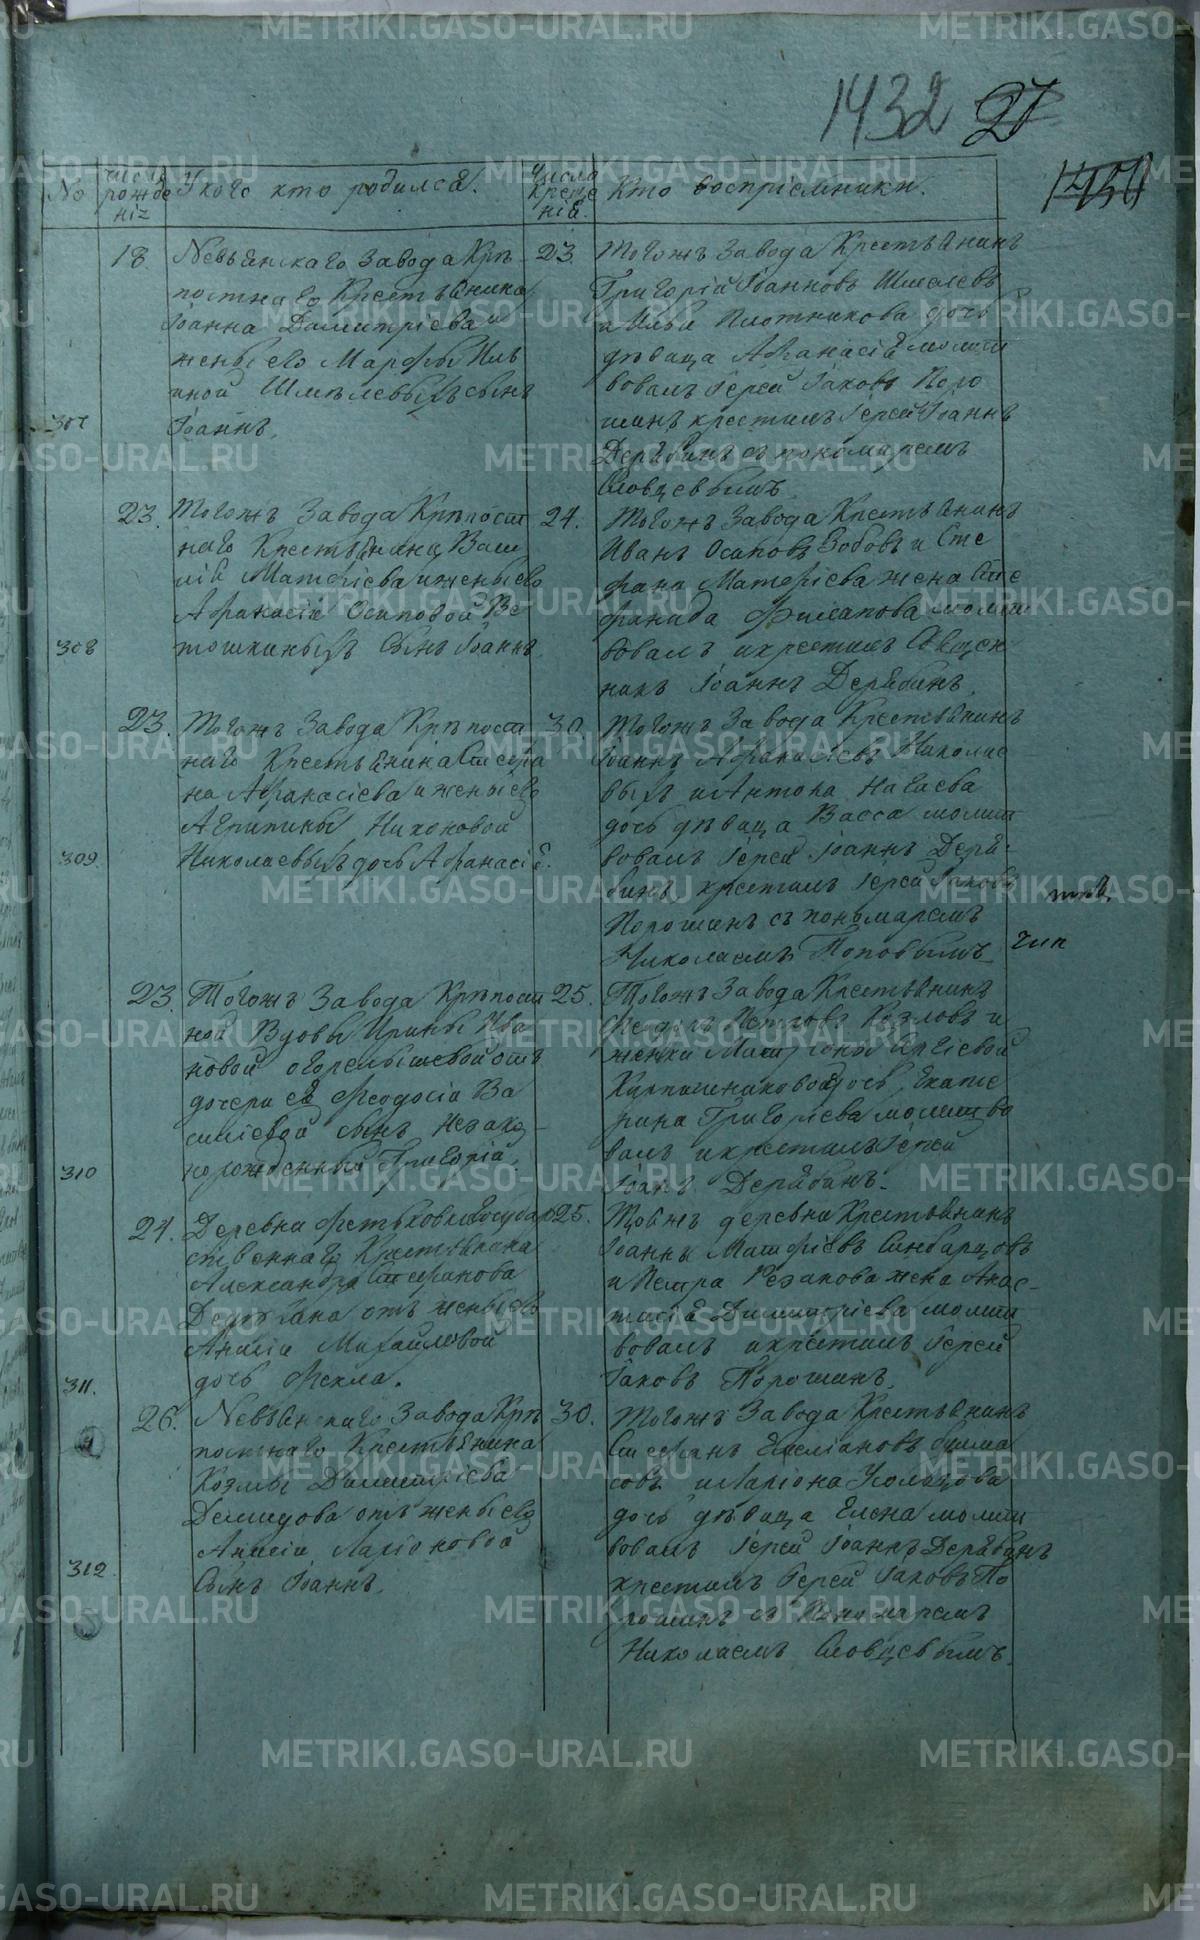 1432 27
1430
No
числа рожде нія
У кого кто родился.
Числа креще нія.
Кто воспріемники.
307
18
Невьянскаго завода Крѣ
постнаго Крестьянина
Іоанна Димитріева и
жены его Марфы Иль
иной Шмѣлевыхъ сынъ
Іоаннъ.
23.
Тогожъ завода Крестьянинъ
Григорій Іоанновъ Шмелевъ
и Ильи Плотникова дочь
дѣвица Афанасія молит
вовалъ Іерей Іаковъ Поро
шинъ крестилъ Іерей Іоаннъ
Дерябинъ съ пономаремъ
Словцевымъ.
308
23.
Тогожъ Завода Крѣпост
наго Крестьянина Васи
лія Матфіева и жены его
Афанасіи Осиповой Ве
тошкиныхъ Сынъ Іоаннъ
24.
Тогожъ Завода Крестьянинъ
Иванъ Осиповъ Зобовъ и Сте
фана Матфіева жена Сте
фанида молит
вовалъ и крестилъ Священ
никъ Іоаннъ Дерябинъ.
309
23.
Тогожъ Завода Крѣпост
наго Крестьянина Стефа
на Афанасіева и жены его
Агрипины Никоновой
Николаевыхъ дочь Афанасія.
30.
Тогожъ Завода Крестьянинъ
Іоаннъ Афанасіевъ Николае
выхъ и Антона Нагаева
дочь дѣвица Васса молит
вовалъ Іерей Іоаннъ Деря
бинъ крестилъ Іерей Іаковъ
Порошинъ съ пономаремъ
Николаемъ Поповымъ
310
23.
Тогожъ Завода Крѣпост
ной Вдовы Ирины Ива
новой Огорелышевой отъ
дочери ея Феодосіи Ва
силіевой сынъ незако
норожденный Григорій.
25.
Тогожъ Завода Крестьянинъ
Федотъ Петровъ Козловъ и
женки Матроны
Кирпишниковой дочь Екате
рина Григоріева молитво
валъ и крестилъ Іерей
Іоанъ Дерябинъ.
311.
24.
Деревни Фетьковки Государ
ственнаго Крестьянина
Александра Стефанова
отъ жены его
Анисіи Михайловой
дочь Фекла.
25.
Тойжъ деревни Крестьянинъ
Іоаннъ Матфіевъ Синбарцовъ
и Петра Резанова жена Анас
тасія Димитріева молит
вовалъ и крестилъ Іерей
Іаковъ Порошинъ.
312.
26.
Невьянскаго Завода Крѣ
постнаго Крестьянина
Козмы Димитріева
Демидова отъ жены его
Анисіи Ларіоновой
Сынъ Іоаннъ.
30.
Тогожъ Завода Крестьянинъ
Стефанъ Емеліановъ Бурма
совъ и Ларіона Усольцова
дочь дѣвица Елена молит
вовалъ Іерей Іоаннъ Дерябинъ
крестилъ Іерей Іаковъ По
рошинъ съ Пономаремъ
Николаемъ Словцевымъ.
METRIKI.GASO-URAL.RU